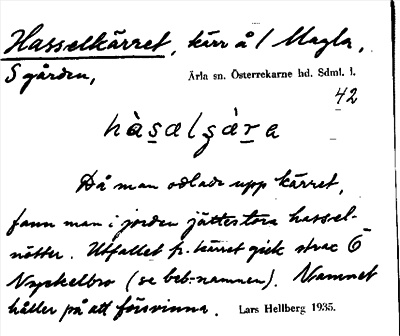 Hasselkärret, kärr å / Magla,
S gården, Ärla sn. Österrekarne hd. Sdml. l.
42
hàsəlɕàrə
Då man odlade upp kärret,
fann man i jorden jättestora hassel-
nötter. Utfallet fr. kärret gick strax Ö
Nyckelbro (se beb.-namnen). Namnet
håller på att försvinna. Lars Hellberg 1935.